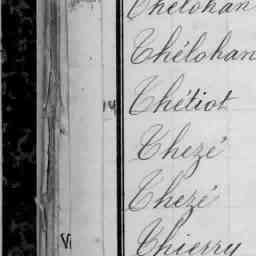 Thélohan
Thélohan
14 Thétiot
Thezé
Thezé
Vi Thierry